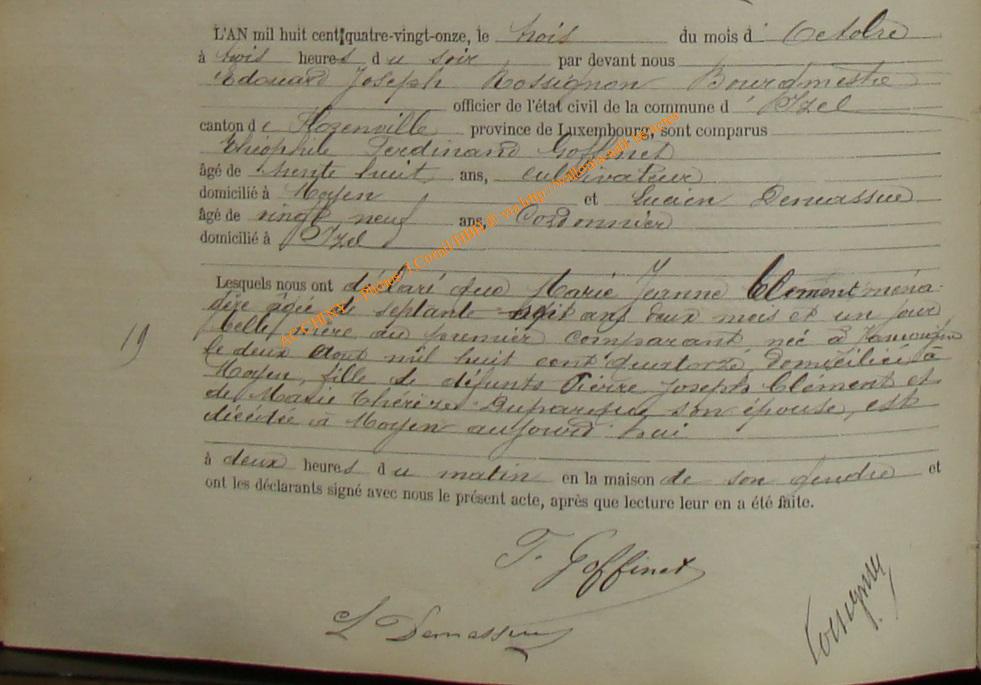 L'AN mil huit cent quatre-vingt-onze, le trois du mois d'Octobre
à trois heures du soir par devant nous
Edouard Joseph Rossignon Bourgmestre
officier de l'état civil de la commune d'Izel
canton de Florenville province de Luxembourg, sont comparus
Théophile Ferdinand Goffinet
âgé de trente huit ans, cultivateur
domicilié à Moyen et Lucien Demassue
âgé de vingt neuf ans, Cordonnier
domicilié à Izel
Lesquels nous ont déclaré que Marie Jeanne Clement ména-
gère âgée de septante sept ans deux mois et un jour
belle mère du premier comparant née à
le deux Aout mil huit cent quatorze, domiciliée à
Moyen, fille de défunts Pierre Joseph Clément et
de Marie Thérèse son épouse, est
décédée à Moyen aujourd'hui
19
à deux heures du matin en la maison de son gendre et
ont les déclarants signé avec nous le présent acte, après que lecture leur en a été faite.
T. Goffinet
L Demassue